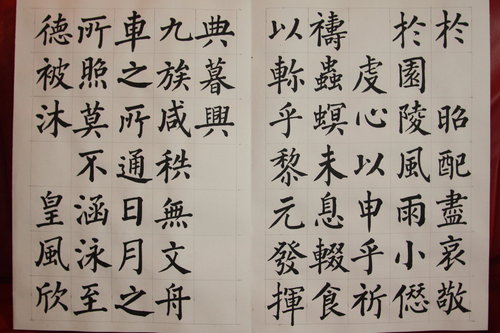 於 昭配盡哀敬
於園陵風雨小愆
虔心以申乎祈
禱蟲螟未息輟食
以軫乎黎元發揮
典暮興
九族咸秩無文舟
車之所通日月之
所照莫不涵泳至
德被沐 皇風欣